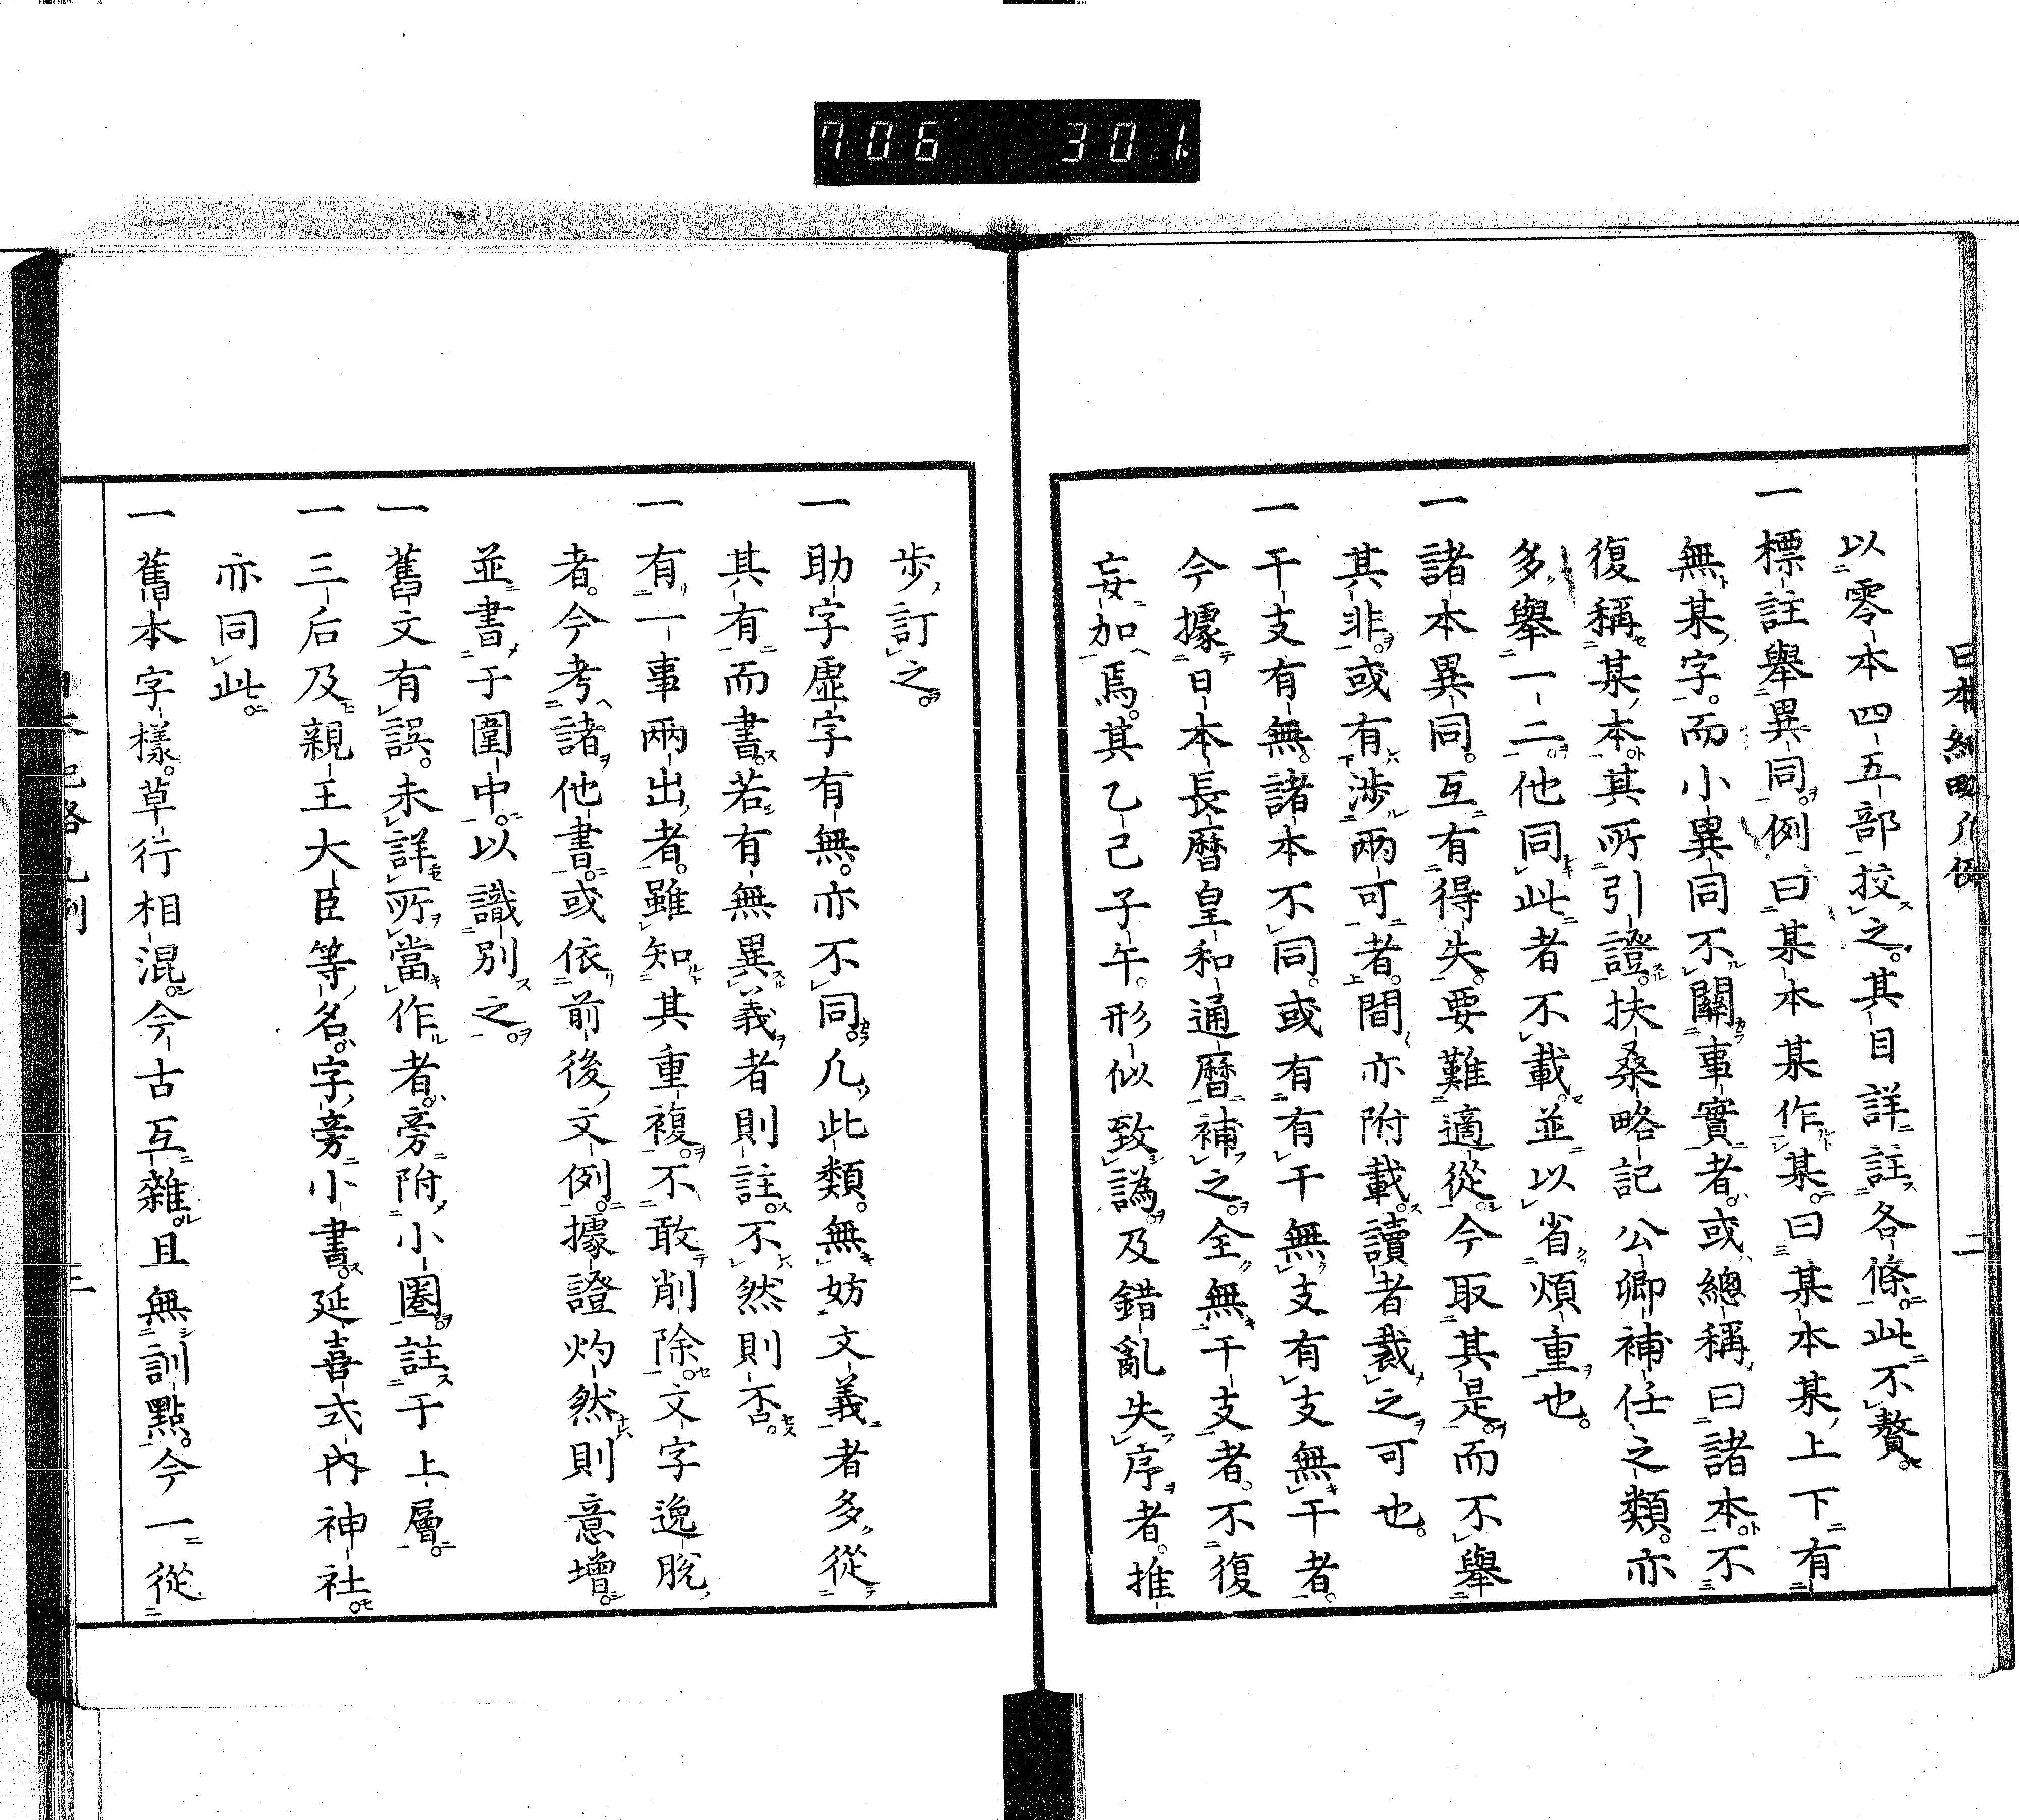 706 301
日本紀略凡例 二
以零本四五部挍之。其目詳註各條。此不贅。
一標註舉異同。例曰某本某作某。曰某本某上下有
無某字。而小異同不關事實者。或總稱曰諸本。不
復稱某本。其所引證。扶桑略記公卿補任之類。亦
多舉一二。他同此者不載。並以省煩重也。
一諸本異同。互有得失。要難適從。今取其是。而不舉
其非。或有涉兩可者。間亦附載。讀者裁之可也。
一干支有無。諸本不同。或有有干無支有支無干者。
今據日本長曆皇和通曆補之。全無干支者。不復
妄加焉。其乙己子午。形似致譌。及錯亂失序者。推
步訂之。
一助字虛字有無。亦不同。凡此類。無妨文義者多。從
其有而書。若有無異義者則註。不然則否。
一有一事兩出者。雖知其重複。不敢削除。文字逸脫
者。今考諸他書。或依前後文例。據證灼然則意增。
並書于圍中。以識別之。
一舊文有誤。未詳所當作者。旁附小圈。註于上層。
一三后及親王大臣等名字。旁小書。延喜式內神社
亦同此。
一舊本字樣。草行相混。今古互雜。且無訓點。今一從
三